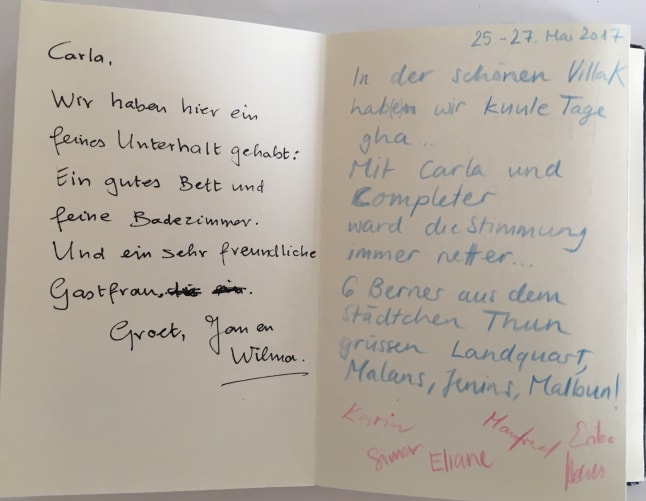 Carla,
Wir haben hier ein
feines Unterhalt gehabt:
Ein gutes Bett und
feine Badezimmer.
Und ein sehr freundliche
Gastfrau.
Groet, Jan en
Wilma.
25-27. Mai 2017
In der schönen Villa K
haben wir kuule Tage
gha...
Mit Carla und
Completer
ward die Stimmung
immer netter...
6 Berner aus dem
Städtchen Thun
grüssen Landquart,
Malans, Jenins, Malbun!
Karin Manfred Erika
Simon Eliane